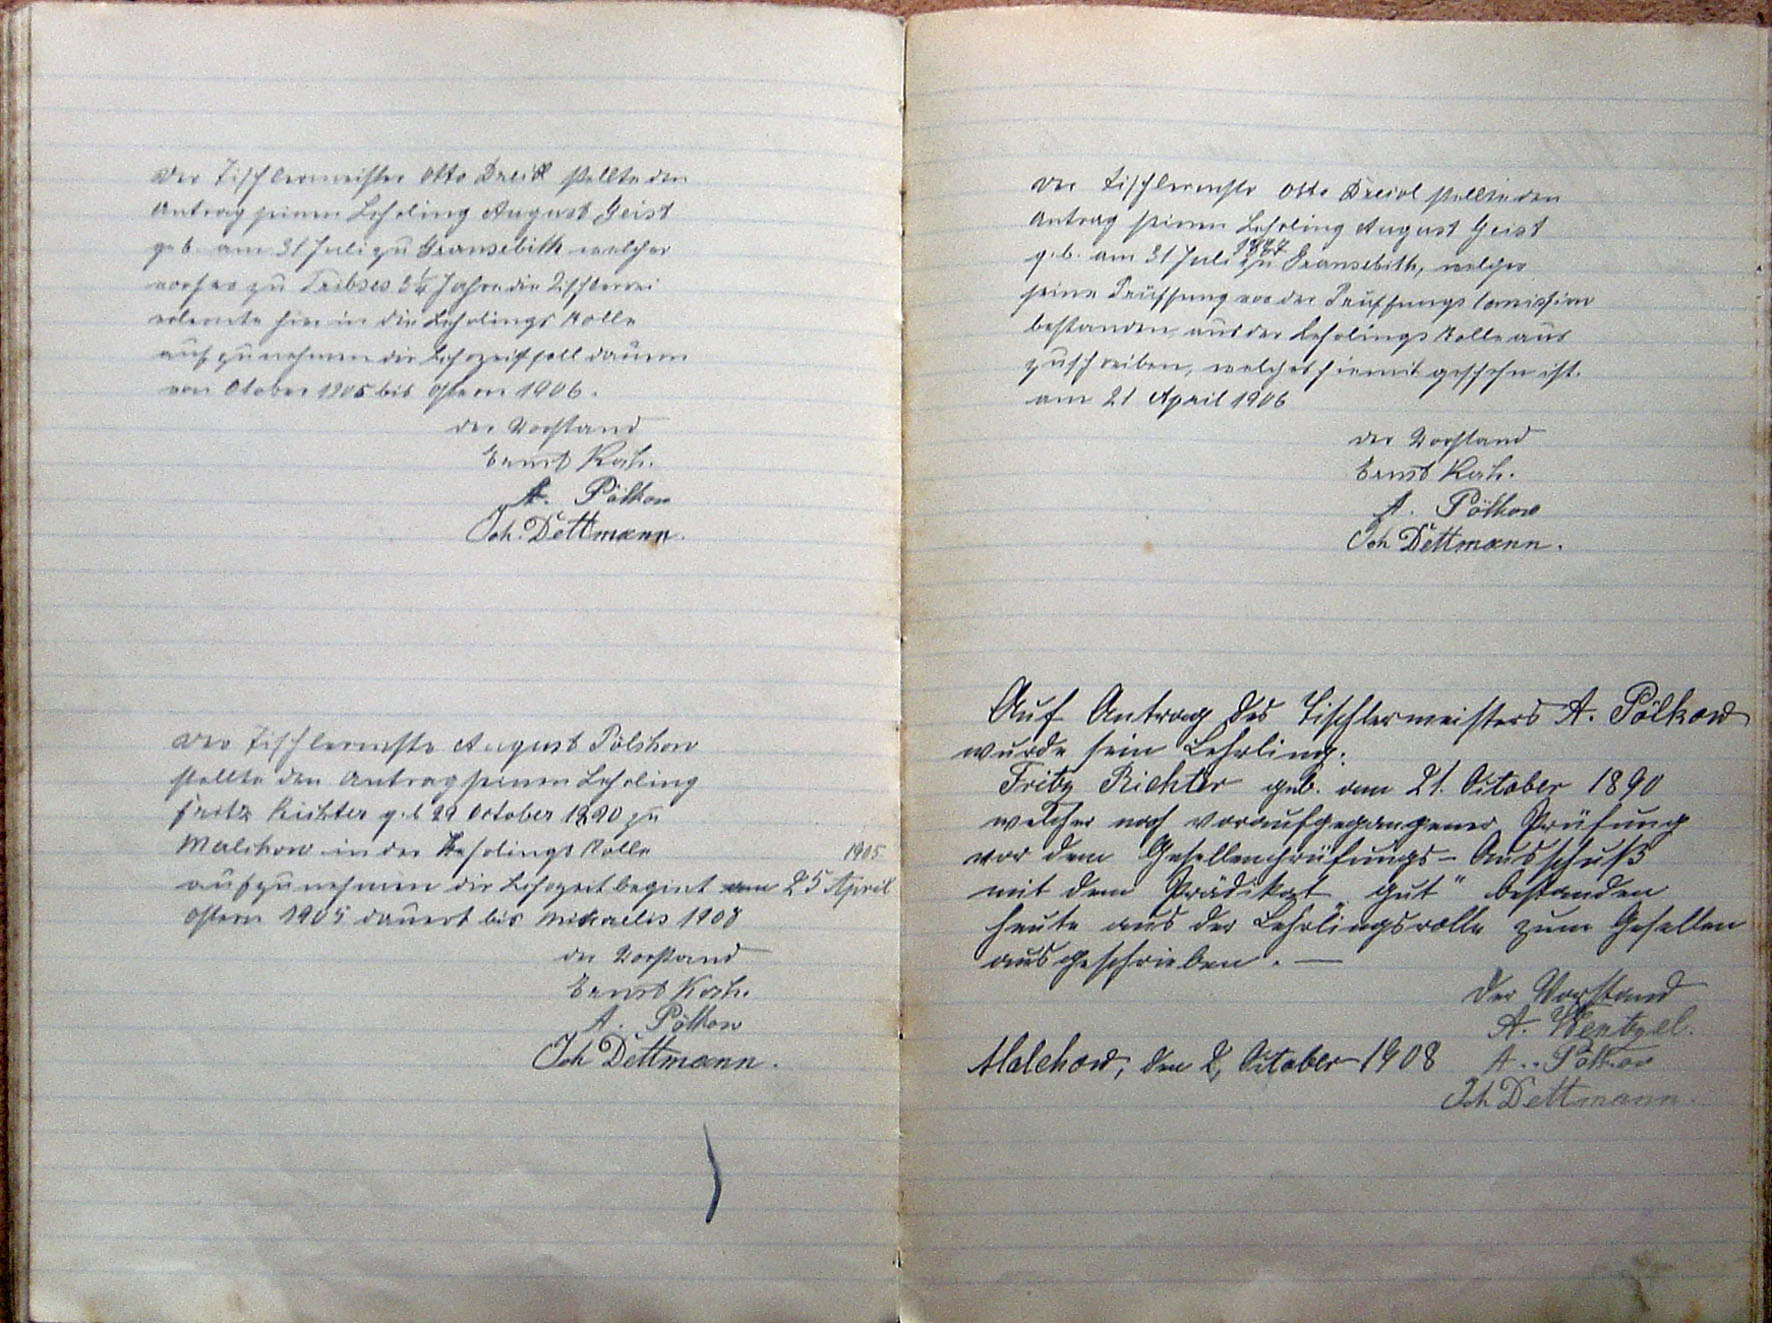 Der Tischlermeister Otto Dreier stellte den
Antrag seinen Lehrling August Geist
geb. am 31 Juli zu Gransebith welcher
vorher zu Tribses 3¼ Jahre die Tischlerrei
erlernte hier in die Lehrlings Rolle
aufzunehmen die Lehrzeit soll dauern
von Otober 1905 bis Ostern 1906.
der Vorstand
Ernst Koch.
A. Pölkow
Joh. Dettmann.
Der Tischlermstr August Pölckow
stellte den Antrag seinen Lehrling
Fritz Richter geb 29 October 1890 zu
Malchow in der Lehrlings Rolle
1905
aufzunehmen die Lehrzeit begint am 25 April
Ostern 1905 dauert bis Michaelis 1908
der Vorstand
Ernst Koch.
A. Pölkow
Joh Dettmann.
Der Tischlermstr Otto stellte den
Antrag seinen Lehrling August Geist
1887
geb. am 31 Juli zu Gransebith, welcher
seine Prüffung vor der Prüffungs Comission
bestanden, aus der Lehrlings Rolle aus
zuschreiben, welches hiermit geschehn ist.
am 21 April 1906
der Vorstand
Ernst Koch.
A. Pölkow
Joh Dettmann.
Auf Antrag des Tischlermeisters A. Pölkow
wurde sein Lehrling:
Fritz Richter geb. am 21. October 1890
welcher nach voraufgegangener Prüfung
vor dem Gesellenprüfungs-Ausschuß
mit dem Prädikat „gut" bestanden
heute aus der Lehrlingsrolle zum Gesellen
ausgeschrieben. —
Der Vorstand
A. Wentzel.
Malchow, den 2, October 1908 A. Pölkow
Joh Dettmann.